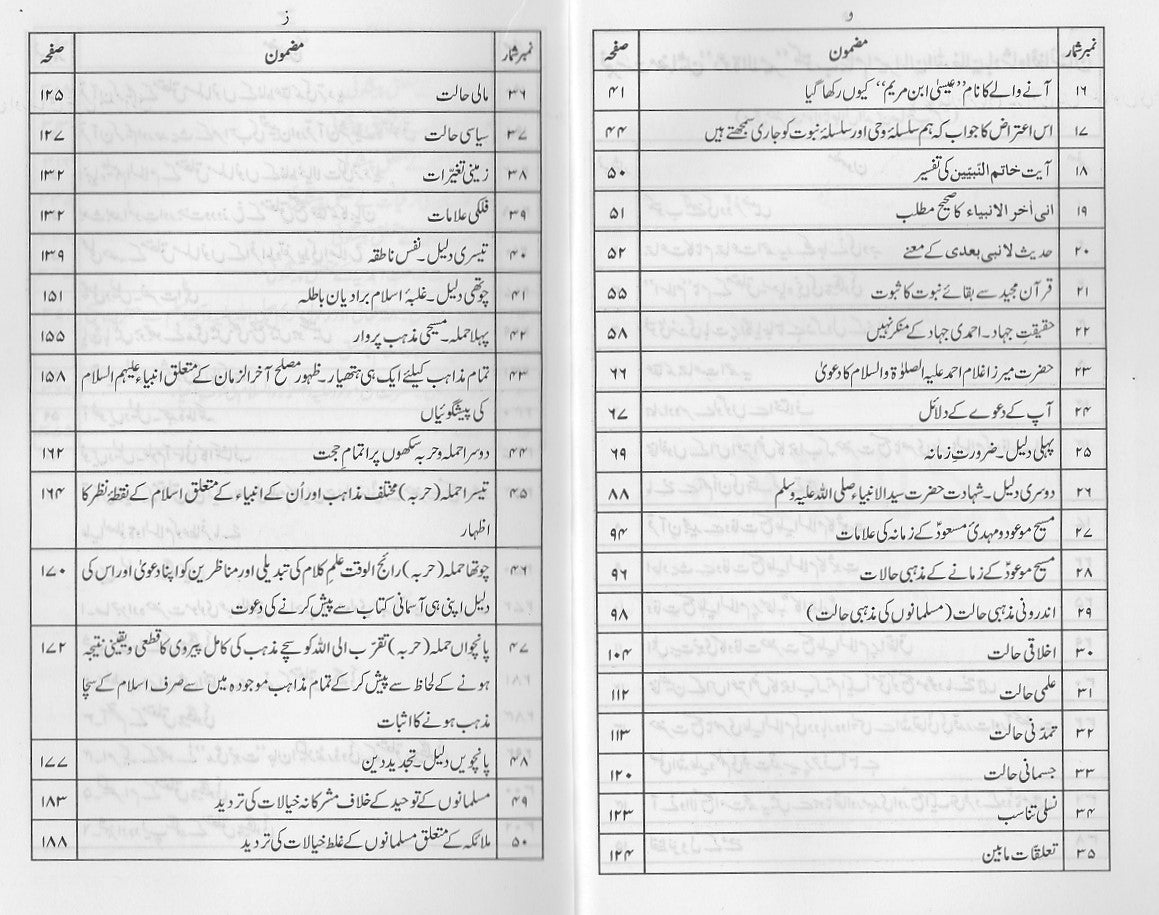 و
نمبرشمار مضمون صفحہ
۱۶ آنے والے کا نام ’’عیسیٰ ابن مریم‘‘ کیوں رکھا گیا ۴۱
۱۷ اس اعتراض کا جواب کہ ہم سلسلۂ وحی اور سلسلۂ نبوت کو جاری سمجھتے ہیں ۴۴
۱۸ آیت خاتم النّبیّین کی تفسیر ۵۰
۱۹ انی اٰخر الانبیاء کا صحیح مطلب ۵۱
۲۰ حدیث لا نبی بعدی کے معنے ۵۲
۲۱ قرآن مجید سے بقائے نبوت کا ثبوت ۵۵
۲۲ حقیقتِ جہاد۔ احمدی جہاد کے منکر نہیں ۵۸
۲۳ حضرت میرزا غلام احمد علیہ الصلوٰۃ والسلام کا دعویٰ ۶۶
۲۴ آپ کے دعوے کے دلائل ۶۷
۲۵ پہلی دلیل۔ ضرورتِ زمانہ ۶۹
۲۶ دوسری دلیل۔ شہادت حضرت سید الانبیاء صلی اللہ علیہ وسلم ۸۸
۲۷ مسیح موعود و مہدیٔ مسعودؑ کے زمانہ کی علامات ۹۴
۲۸ مسیح موعودؑ کے زمانے کے مذہبی حالات ۹۶
۲۹ اندرونی مذہبی حالت (مسلمانوں کی مذہبی حالت) ۹۸
۳۰ اخلاقی حالت ۱۰۴
۳۱ علمی حالت ۱۱۲
۳۲ تمدّنی حالت ۱۱۳
۳۳ جسمانی حالت ۱۲۰
۳۴ نسلی تناسب ۱۲۳
۳۵ تعلقات مابین ۱۲۴
ز
نمبرشمار مضمون صفحہ
۳۶ مالی حالت ۱۲۵
۳۷ سیاسی حالت ۱۲۷
۳۸ زمینی تغیّرات ۱۳۲
۳۹ فلکی علامات ۱۳۲
۴۰ تیسری دلیل۔ نفس ناطقہ ۱۳۹
۴۱ چوتھی دلیل۔ غلبۂ اسلام بر ادیان باطلہ ۱۵۱
۴۲ پہلا حملہ۔ مسیحی مذہب پر وار ۱۵۵
۴۳ تمام مذاہب کیلئے ایک ہی ہتھیار۔ ظہور مصلح آخر الزمان کے متعلق انبیاء علیہم السلام ۱۵۸
کی پیشگوئیاں
۴۴ دوسرا حملہ وحربہ سکھوں پر اتمامِ حجت ۱۶۲
۴۵ تیسرا حملہ (حربہ) مختلف مذاہب اور اُن کے انبیاء کے متعلق اسلام کے نقطۂ نظر کا ۱۶۴
اظہار
۴۶ چوتھا حملہ (حربہ) رائج الوقت علمِ کلام کی تبدیلی اور مناظرین کو اپنا دعویٰ اور اس کی ۱۷۰
دلیل اپنی ہی آسمانی کتاب سے پیش کرنے کی دعوت
۴۷ پانچواں حملہ (حربہ) تقرّب الی اللہ کو سچے مذہب کی کامل پیروی کا قطعی و یقینی نتیجہ ۱۷۲
ہونے کے لحاظ سے پیش کر کے تمام مذاہب موجودہ میں سے صرف اسلام کے سچا
مذہب ہونے کا اثبات
۴۸ پانچویں دلیل۔ تجدید دین ۱۷۷
۴۹ مسلمانوں کے توحید کے خلاف مشرکانہ خیالات کی تردید ۱۸۳
۵۰ ملائکہ کے متعلق مسلمانوں کے غلط خیالات کی تردید ۱۸۸